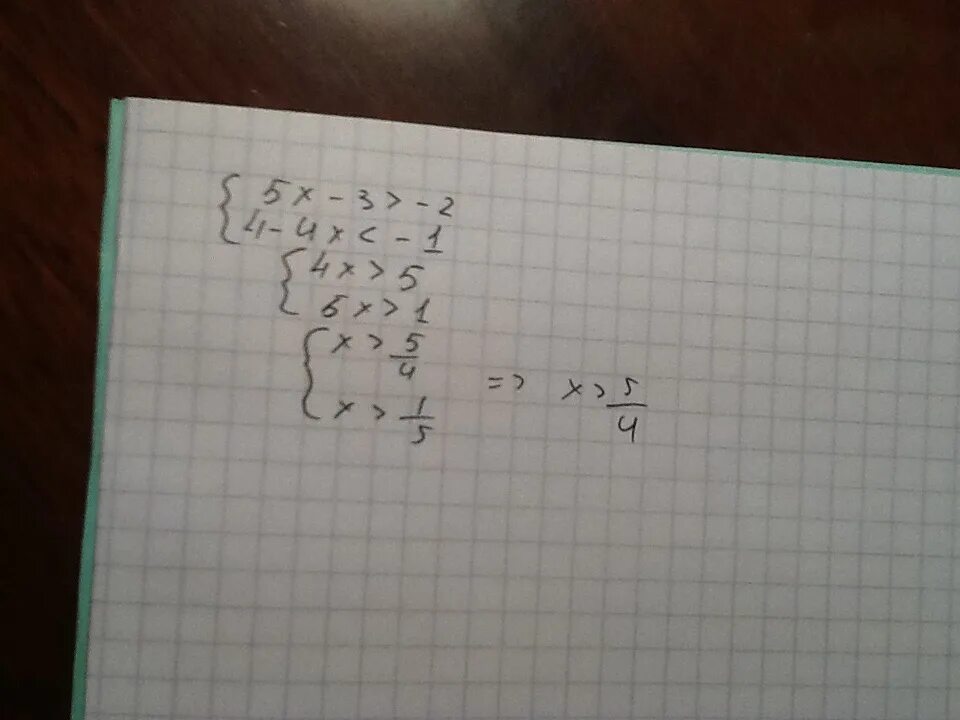 { 5x - 3 > - 2
4 - 4x < - 1
{ 4x > 5
5x > 1
{ x > 5/4
x > 1/5
=> x > 5/4